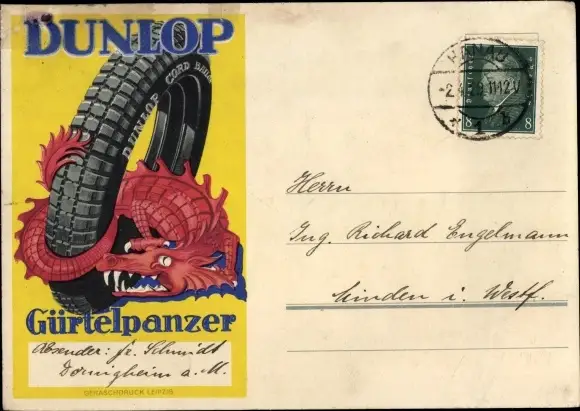 DUNLOP
DUNLOP CORD
Gürtelpanzer
Absender: fr. Schmidt
Dörnigheim a. M.
DERASCHDRUCK LEIPZIG
HANAU
-2.4.29.11-12V
* 1 b
8 8
Herrn
Ing. Richard Engelmann
Minden i. Westf.